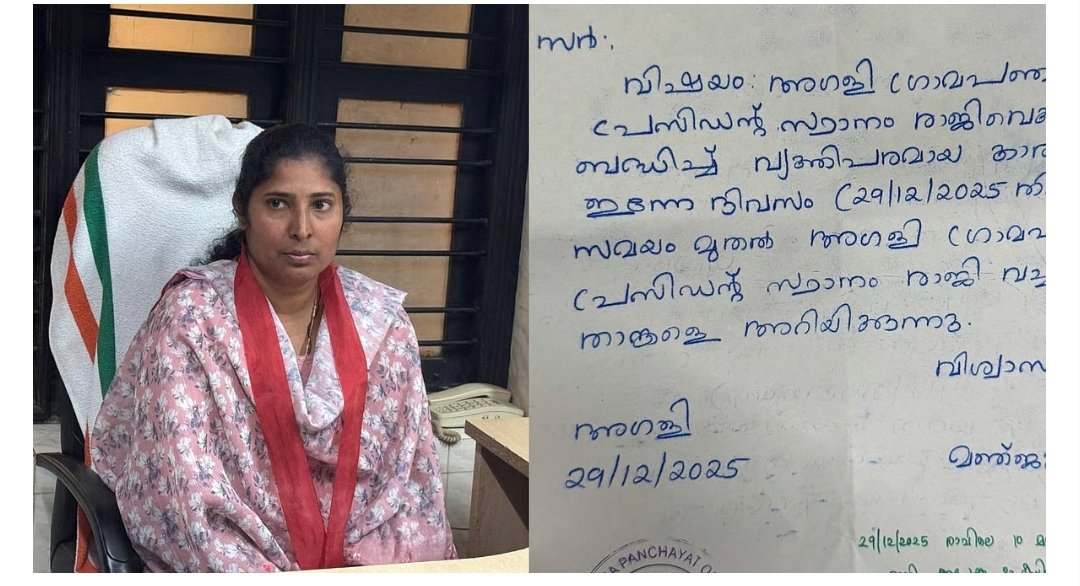 സർ,
വിഷയം: അഗളി ഗ്രാമപഞ്ച
പ്രസിഡന്റ് സ്ഥാനം രാജിവെക്
ബന്ധിച്ച് വ്യക്തിപരമായ കാര
ഇന്നേ ദിവസം (29/12/2025 തി
സമയം മുതൽ അഗളി ഗ്രാമപ
പ്രസിഡന്റ് സ്ഥാനം രാജി വച്ച
താങ്കളെ അറിയിക്കുന്നു.
വിശ്വാസ
അഗളി
29/12/2025
മഞ്ജു
29/12/2025 രാവിലെ 10 മ
PANCHAYAT O